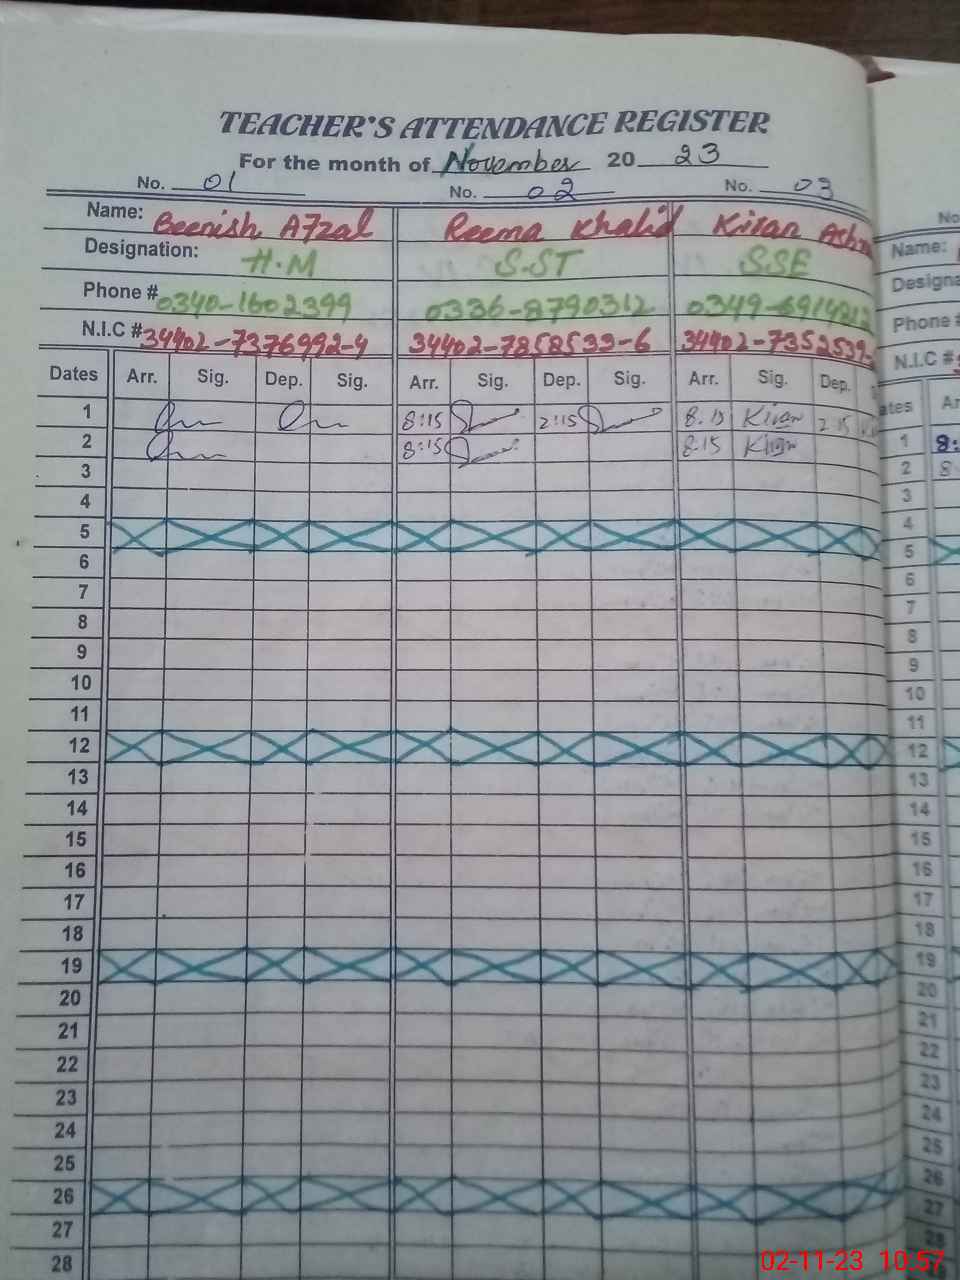 TEACHER'S ATTENDANCE REGISTER
For the month of November 20 23
No. 01 No. 02 No. 03
Name: Beenish Afzal Reema Khalid Kiran
Designation: H.M S.ST SSE
Phone # 0340-1602399 0336-8790312
N.I.C # 34402-7376992-4 34402-7858533-6 34402-7352539-
Dates Arr. Sig. Dep. Sig. Arr. Sig. Dep. Sig. Arr. Sig. Dep.
1 8:15 2:15 8.15 Kiran 2:15
2 8:15 8.15 Kiran
3
4
5
6
7
8
9
10
11
12
13
14
15
16
17
18
19
20
21
22
23
24
25
26
27
28
No
Name:
Phone #
N.I.C #
1 8:
2 8
3
4
5
6
7
8
9
10
11
12
13
14
15
16
17
18
19
20
21
22
23
24
25
26
27
28
02-11-23 10:57